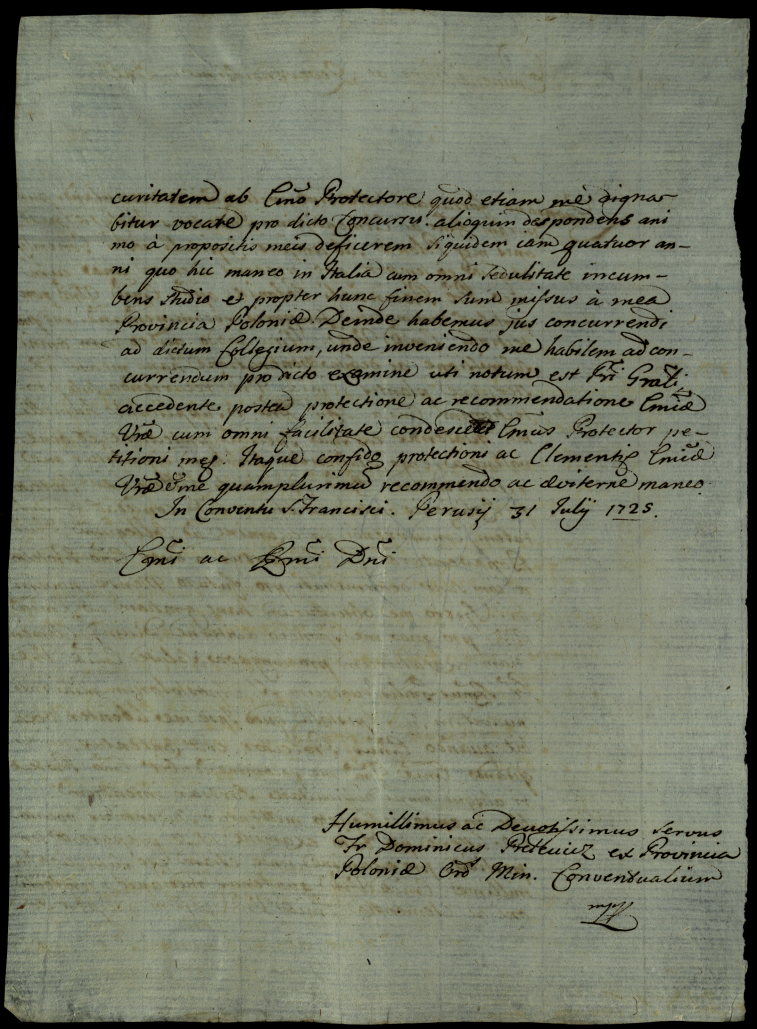 curitatem ab Em̃o Protectore, quod etiam me digna-
bitur vocare pro dicto Concursu: alioquin despondens ani
mo à propositis meis deficerem siquidem iam quatuor an-
ni quo hic maneo in Italia cum omni sedulitate incum-
bens studio et propter hunc finem sum missus à mea
Provincia Poloniæ. Deinde habemus jus concurrendi
ad dictum Collegium, unde inveniendo me habilem ad con-
currendum pro dicto examine uti notum est
accedente postea protectione ac recommendatione Em̃æ
Vr̃æ cum omni facilitate Em̃us Protector pe-
titioni meę. Itaque confido protectioni ac Clementię Em̃æ
Vr̃æ me quamplurimum recommendo ac æviterne maneo.
In Conventu S. Francisci. Perusij 31 Julij 1725.
Em̃i ac Rm̃i Dñi
Humillimus ac Devotissimus servus
Fr Dominicus ex Provincia
Poloniæ Ord Min. Conventualium
mpp